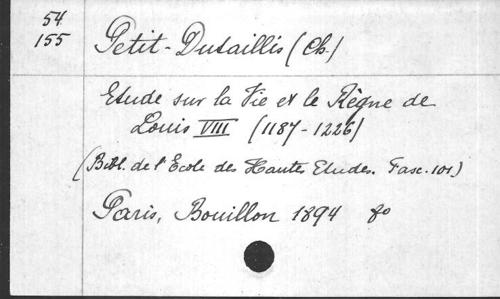 54
155
Petit-Dutaillis (Ch.)
Etude sur la Vie et le Règne de
Louis VIII (1187-1226)
(Bibl. de l'Ecole des Hautes Etudes. Fasc. 101)
Paris, Bouillon 1894 8o